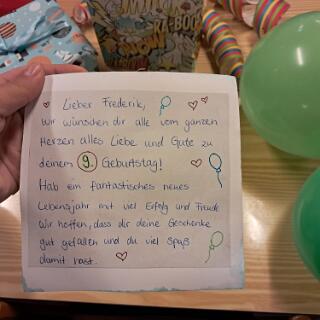 Lieber Frederik,
wir wünschen dir alle vom ganzen
Herzen alles Liebe und Gute zu
deinem 9. Geburtstag!
Hab ein fantastisches neues
Lebensjahr mit viel Erfolg und Freude
Wir hoffen, dass dir deine Geschenke
gut gefallen und du viel Spaß
damit hast.
KA-BOOM